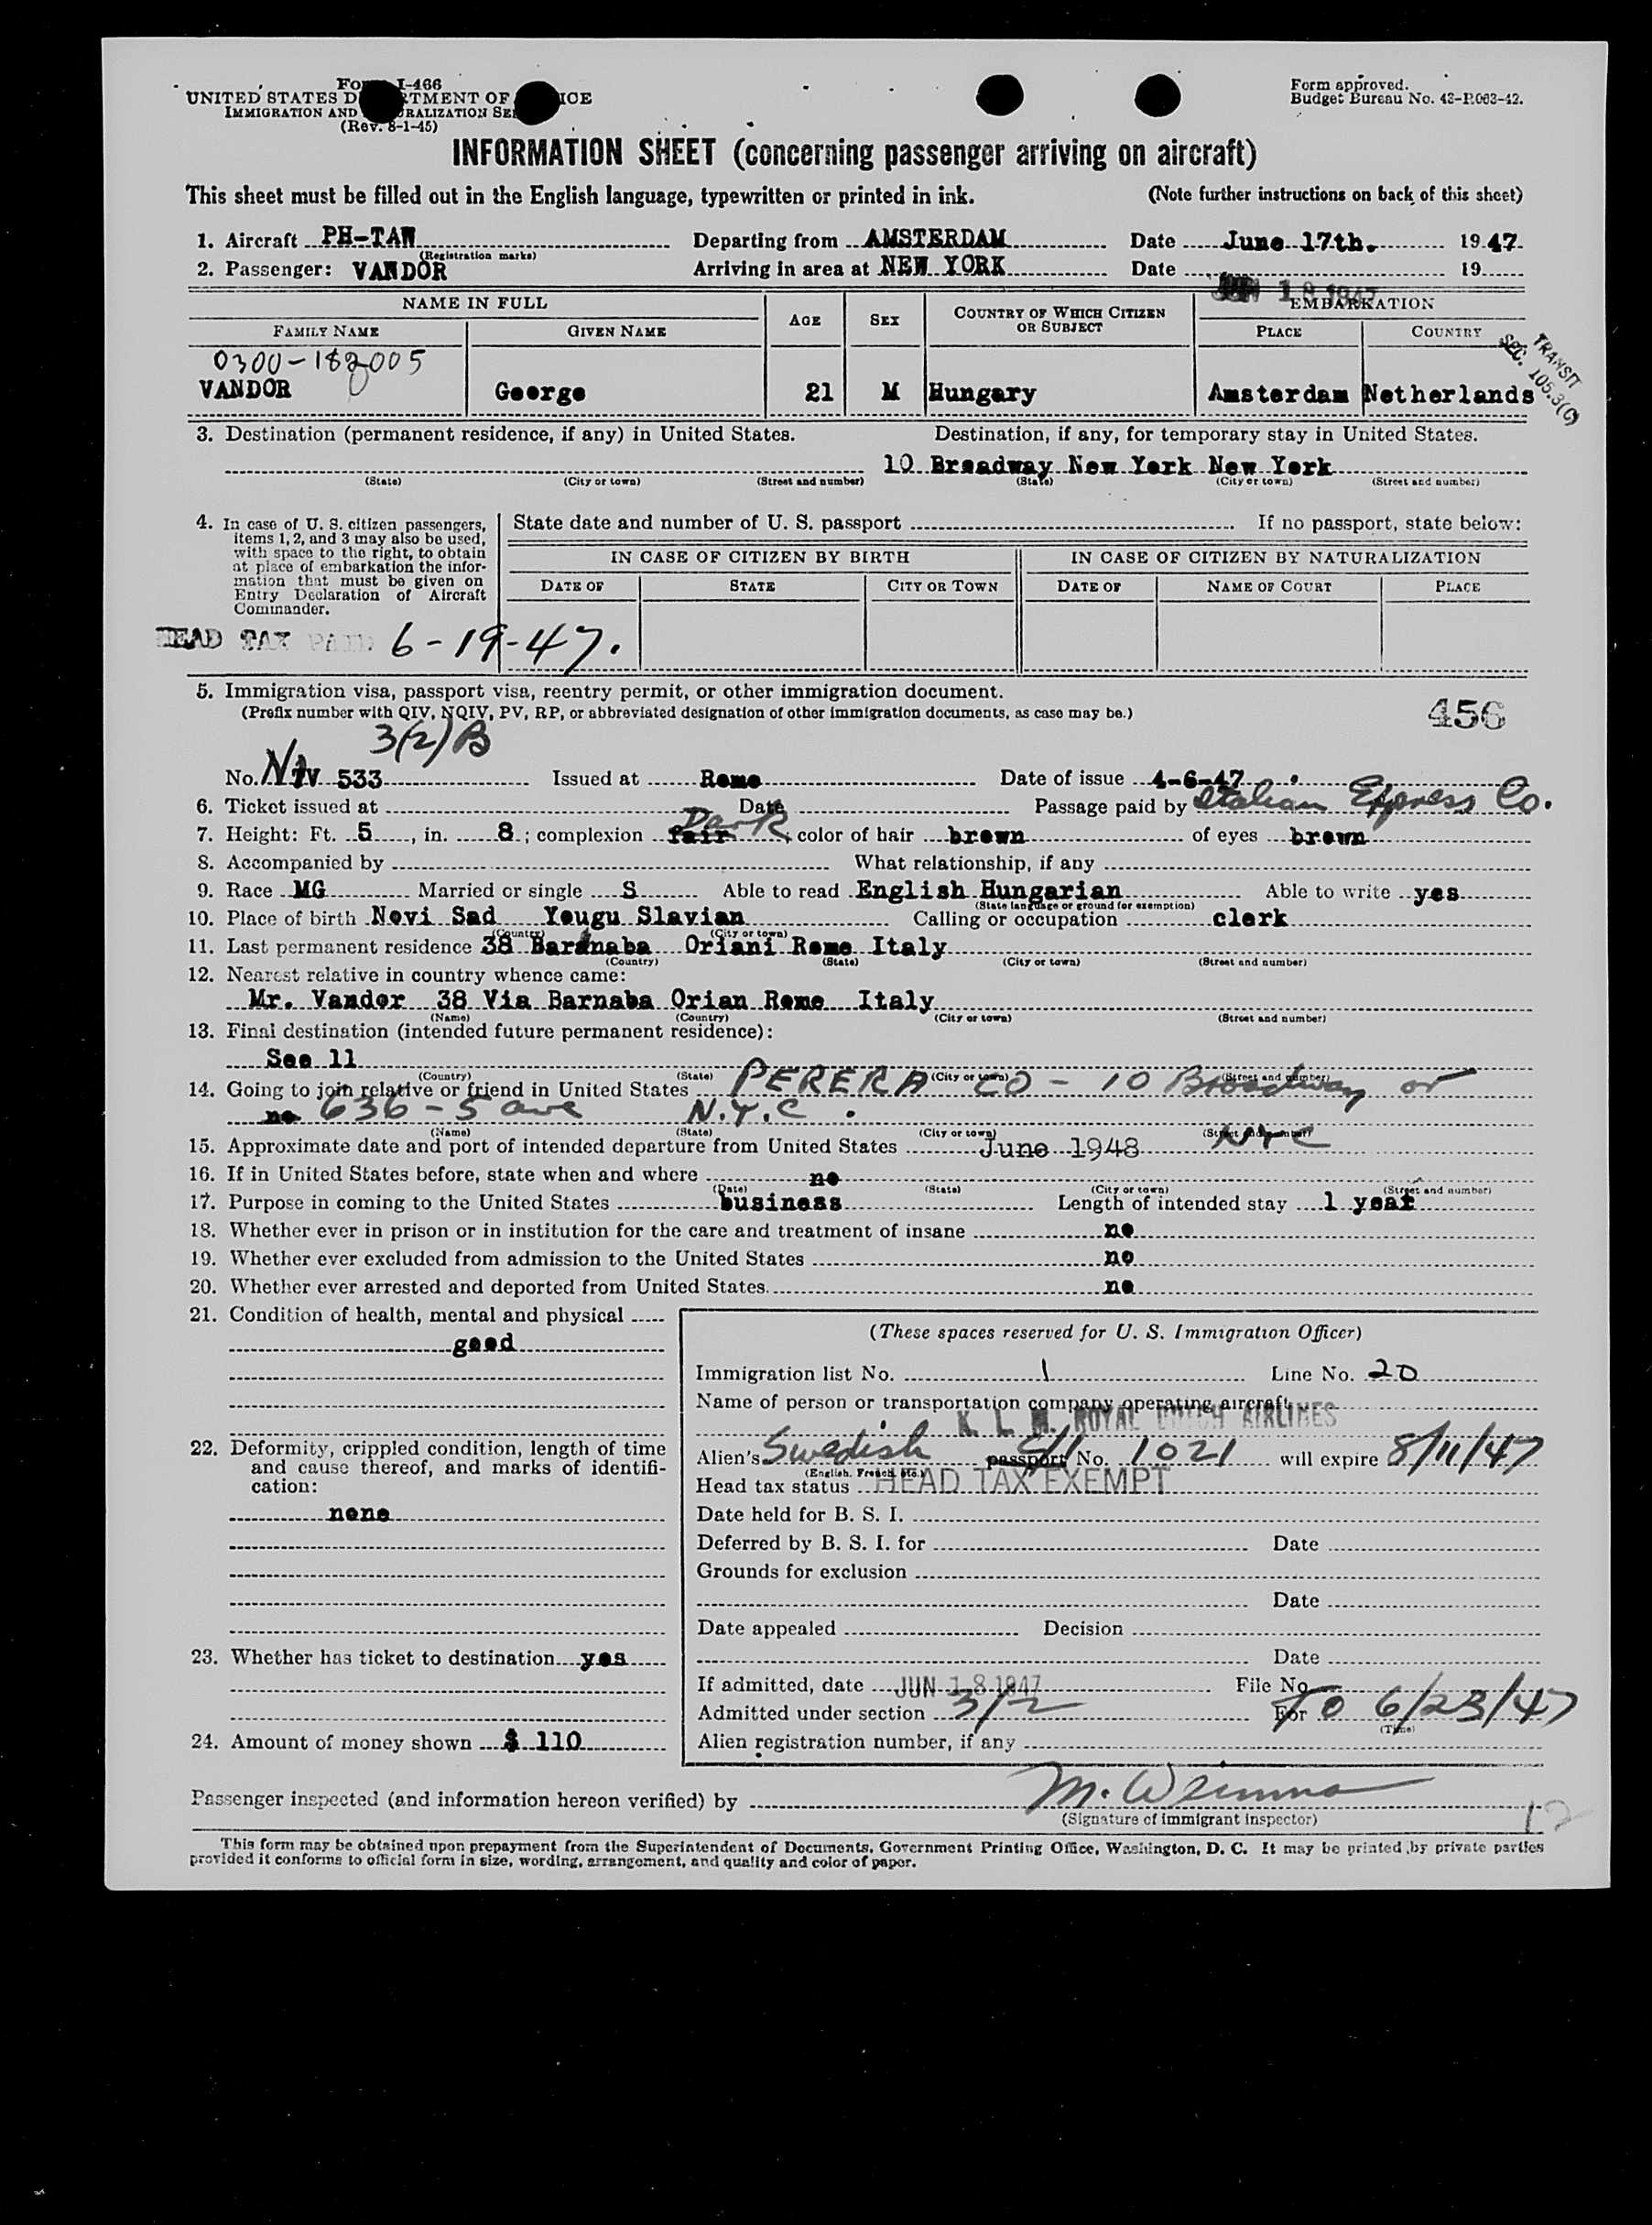 Form I-466
UNITED STATES DEPARTMENT OF JUSTICE
IMMIGRATION AND NATURALIZATION SERVICE
(Rev. 8-1-45)
Form approved.
Budget Bureau No. 43-R063-42.
INFORMATION SHEET (concerning passenger arriving on aircraft)
This sheet must be filled out in the English language, typewritten or printed in ink. (Note further instructions on back of this sheet)
1. Aircraft PH-TAW Departing from AMSTERDAM Date June 17th. 1947.
(Registration marks)
2. Passenger: VANDOR Arriving in area at NEW YORK Date JUN 18 1947 19
NAME IN FULL AGE SEX COUNTRY OF WHICH CITIZEN OR SUBJECT EMBARKATION
FAMILY NAME GIVEN NAME PLACE COUNTRY
TRANSIT
SEC. 105.3(C)
0300-182005
VANDOR George 21 M Hungary Amsterdam Netherlands
3. Destination (permanent residence, if any) in United States. Destination, if any, for temporary stay in United States.
10 Broadway New York New York
(State) (City or town) (Street and number) (State) (City or town) (Street and number)
4. In case of U. S. citizen passengers, items 1, 2, and 3 may also be used, with space to the right, to obtain at place of embarkation the information that must be given on Entry Declaration of Aircraft Commander.
State date and number of U. S. passport If no passport, state below:
IN CASE OF CITIZEN BY BIRTH IN CASE OF CITIZEN BY NATURALIZATION
DATE OF STATE CITY OR TOWN DATE OF NAME OF COURT PLACE
HEAD TAX PAID 6-19-47.
5. Immigration visa, passport visa, reentry permit, or other immigration document.
(Prefix number with QIV, NQIV, PV, RP, or abbreviated designation of other immigration documents, as case may be.)
456
3(2)B
No. NIV 533 Issued at Rome Date of issue 4-6-47
6. Ticket issued at Date Passage paid by Italian Express Co.
7. Height: Ft. 5, in. 8; complexion fair Dark; color of hair brown of eyes brown
8. Accompanied by What relationship, if any
9. Race MG Married or single S Able to read English Hungarian Able to write yes
(State language or ground for exemption)
10. Place of birth Novi Sad Yougu Slavian Calling or occupation clerk
(Country) (City or town)
11. Last permanent residence 38 Barnaba Oriani Rome Italy
(Country) (State) (City or town) (Street and number)
12. Nearest relative in country whence came:
Mr. Vandor 38 Via Barnaba Orian Rome Italy
(Name) (Country) (City or town) (Street and number)
13. Final destination (intended future permanent residence):
See 11
(Country) (State) (City or town) (Street and number)
14. Going to join relative or friend in United States PERERA CO - 10 Broadway or
no 636 - 5 ave N.Y.C.
(Name) (State) (City or town) (Street and number)
15. Approximate date and port of intended departure from United States June 1948 NYC
16. If in United States before, state when and where no
(Date) (State) (City or town) (Street and number)
17. Purpose in coming to the United States business Length of intended stay 1 year
18. Whether ever in prison or in institution for the care and treatment of insane no
19. Whether ever excluded from admission to the United States no
20. Whether ever arrested and deported from United States. no
21. Condition of health, mental and physical
good
22. Deformity, crippled condition, length of time and cause thereof, and marks of identification:
none
23. Whether has ticket to destination yes
24. Amount of money shown $ 110
(These spaces reserved for U. S. Immigration Officer)
Immigration list No. 1 Line No. 20
Name of person or transportation company operating aircraft
K. L. M. ROYAL DUTCH AIRLINES
Alien's Swedish passport No. 1021 will expire 8/11/47
(English, French, etc.)
Head tax status HEAD TAX EXEMPT
Date held for B. S. I.
Deferred by B. S. I. for Date
Grounds for exclusion
Date
Date appealed Decision
Date
If admitted, date JUN 18 1947 File No.
Admitted under section 3/2 For TO 6/23/47
(Time)
Alien registration number, if any
Passenger inspected (and information hereon verified) by
(Signature of immigrant inspector)
12
This form may be obtained upon prepayment from the Superintendent of Documents, Government Printing Office, Washington, D. C. It may be printed by private parties
provided it conforms to official form in size, wording, arrangement, and quality and color of paper.